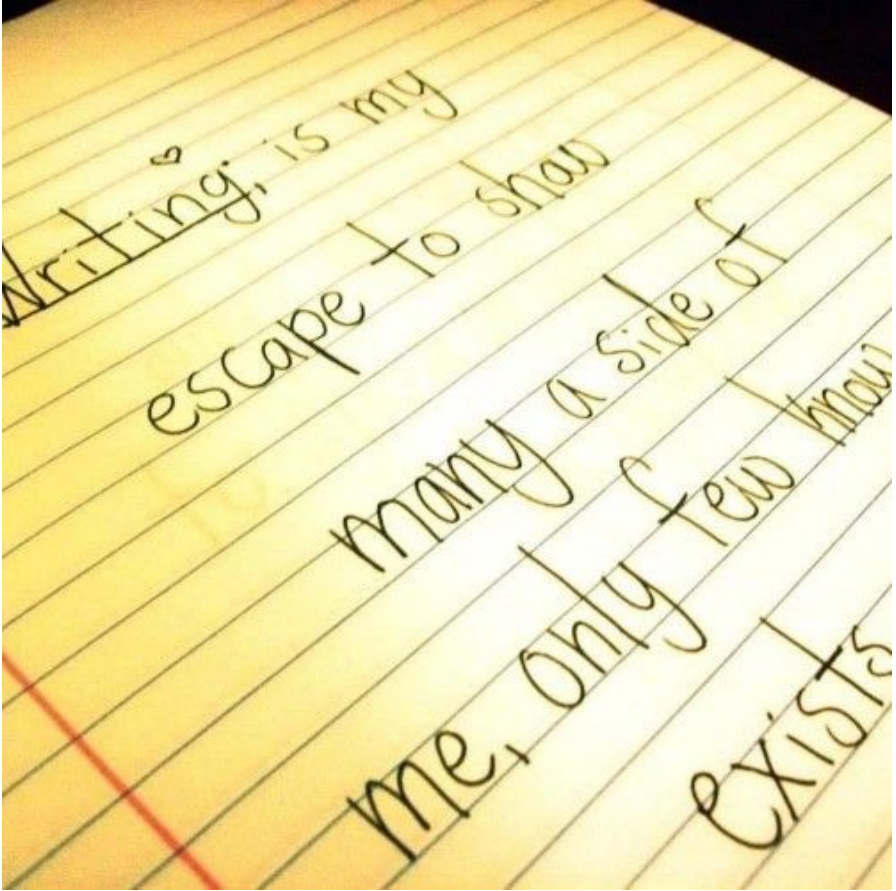 Writing, is my
escape to show
many a side of
me, only few know
exists